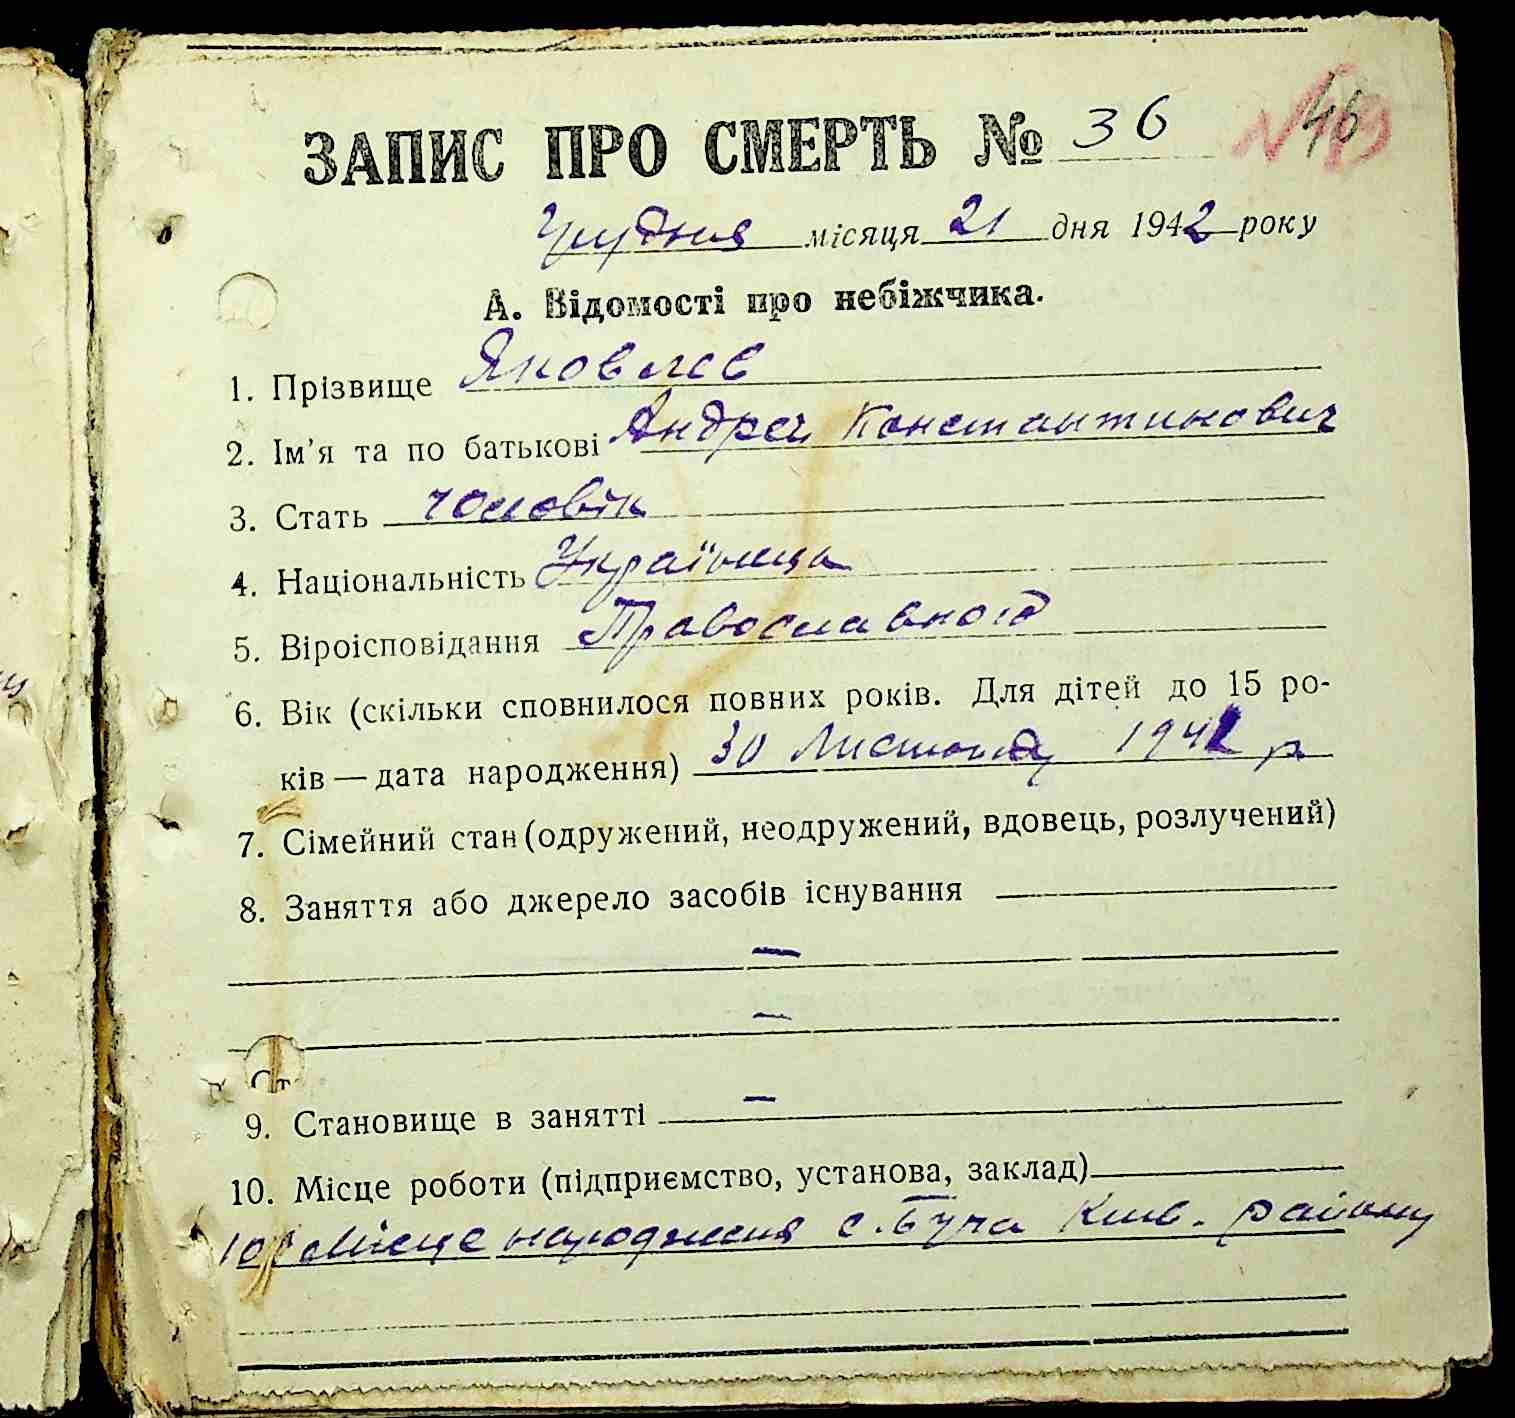 ЗАПИС ПРО СМЕРТЬ № 36 46
Грудня місяця 21 дня 1942 року
А. Відомості про небіжчика.
1. Прізвище Яковлев
2. Ім’я та по батькові Андрей Константинович
3. Стать чоловік
4. Національність Українець
5. Віроісповідання Православного
6. Вік (скільки сповнилося повних років. Для дітей до 15 ро-
ків — дата народження) 30 Листопад 194 р
7. Сімейний стан (одружений, неодружений, вдовець, розлучений)
8. Заняття або джерело засобів існування
—
—
Ст
9. Становище в занятті —
10. Місце роботи (підприємство, установа, заклад)
10 Місце народження с. Буча Київ. району